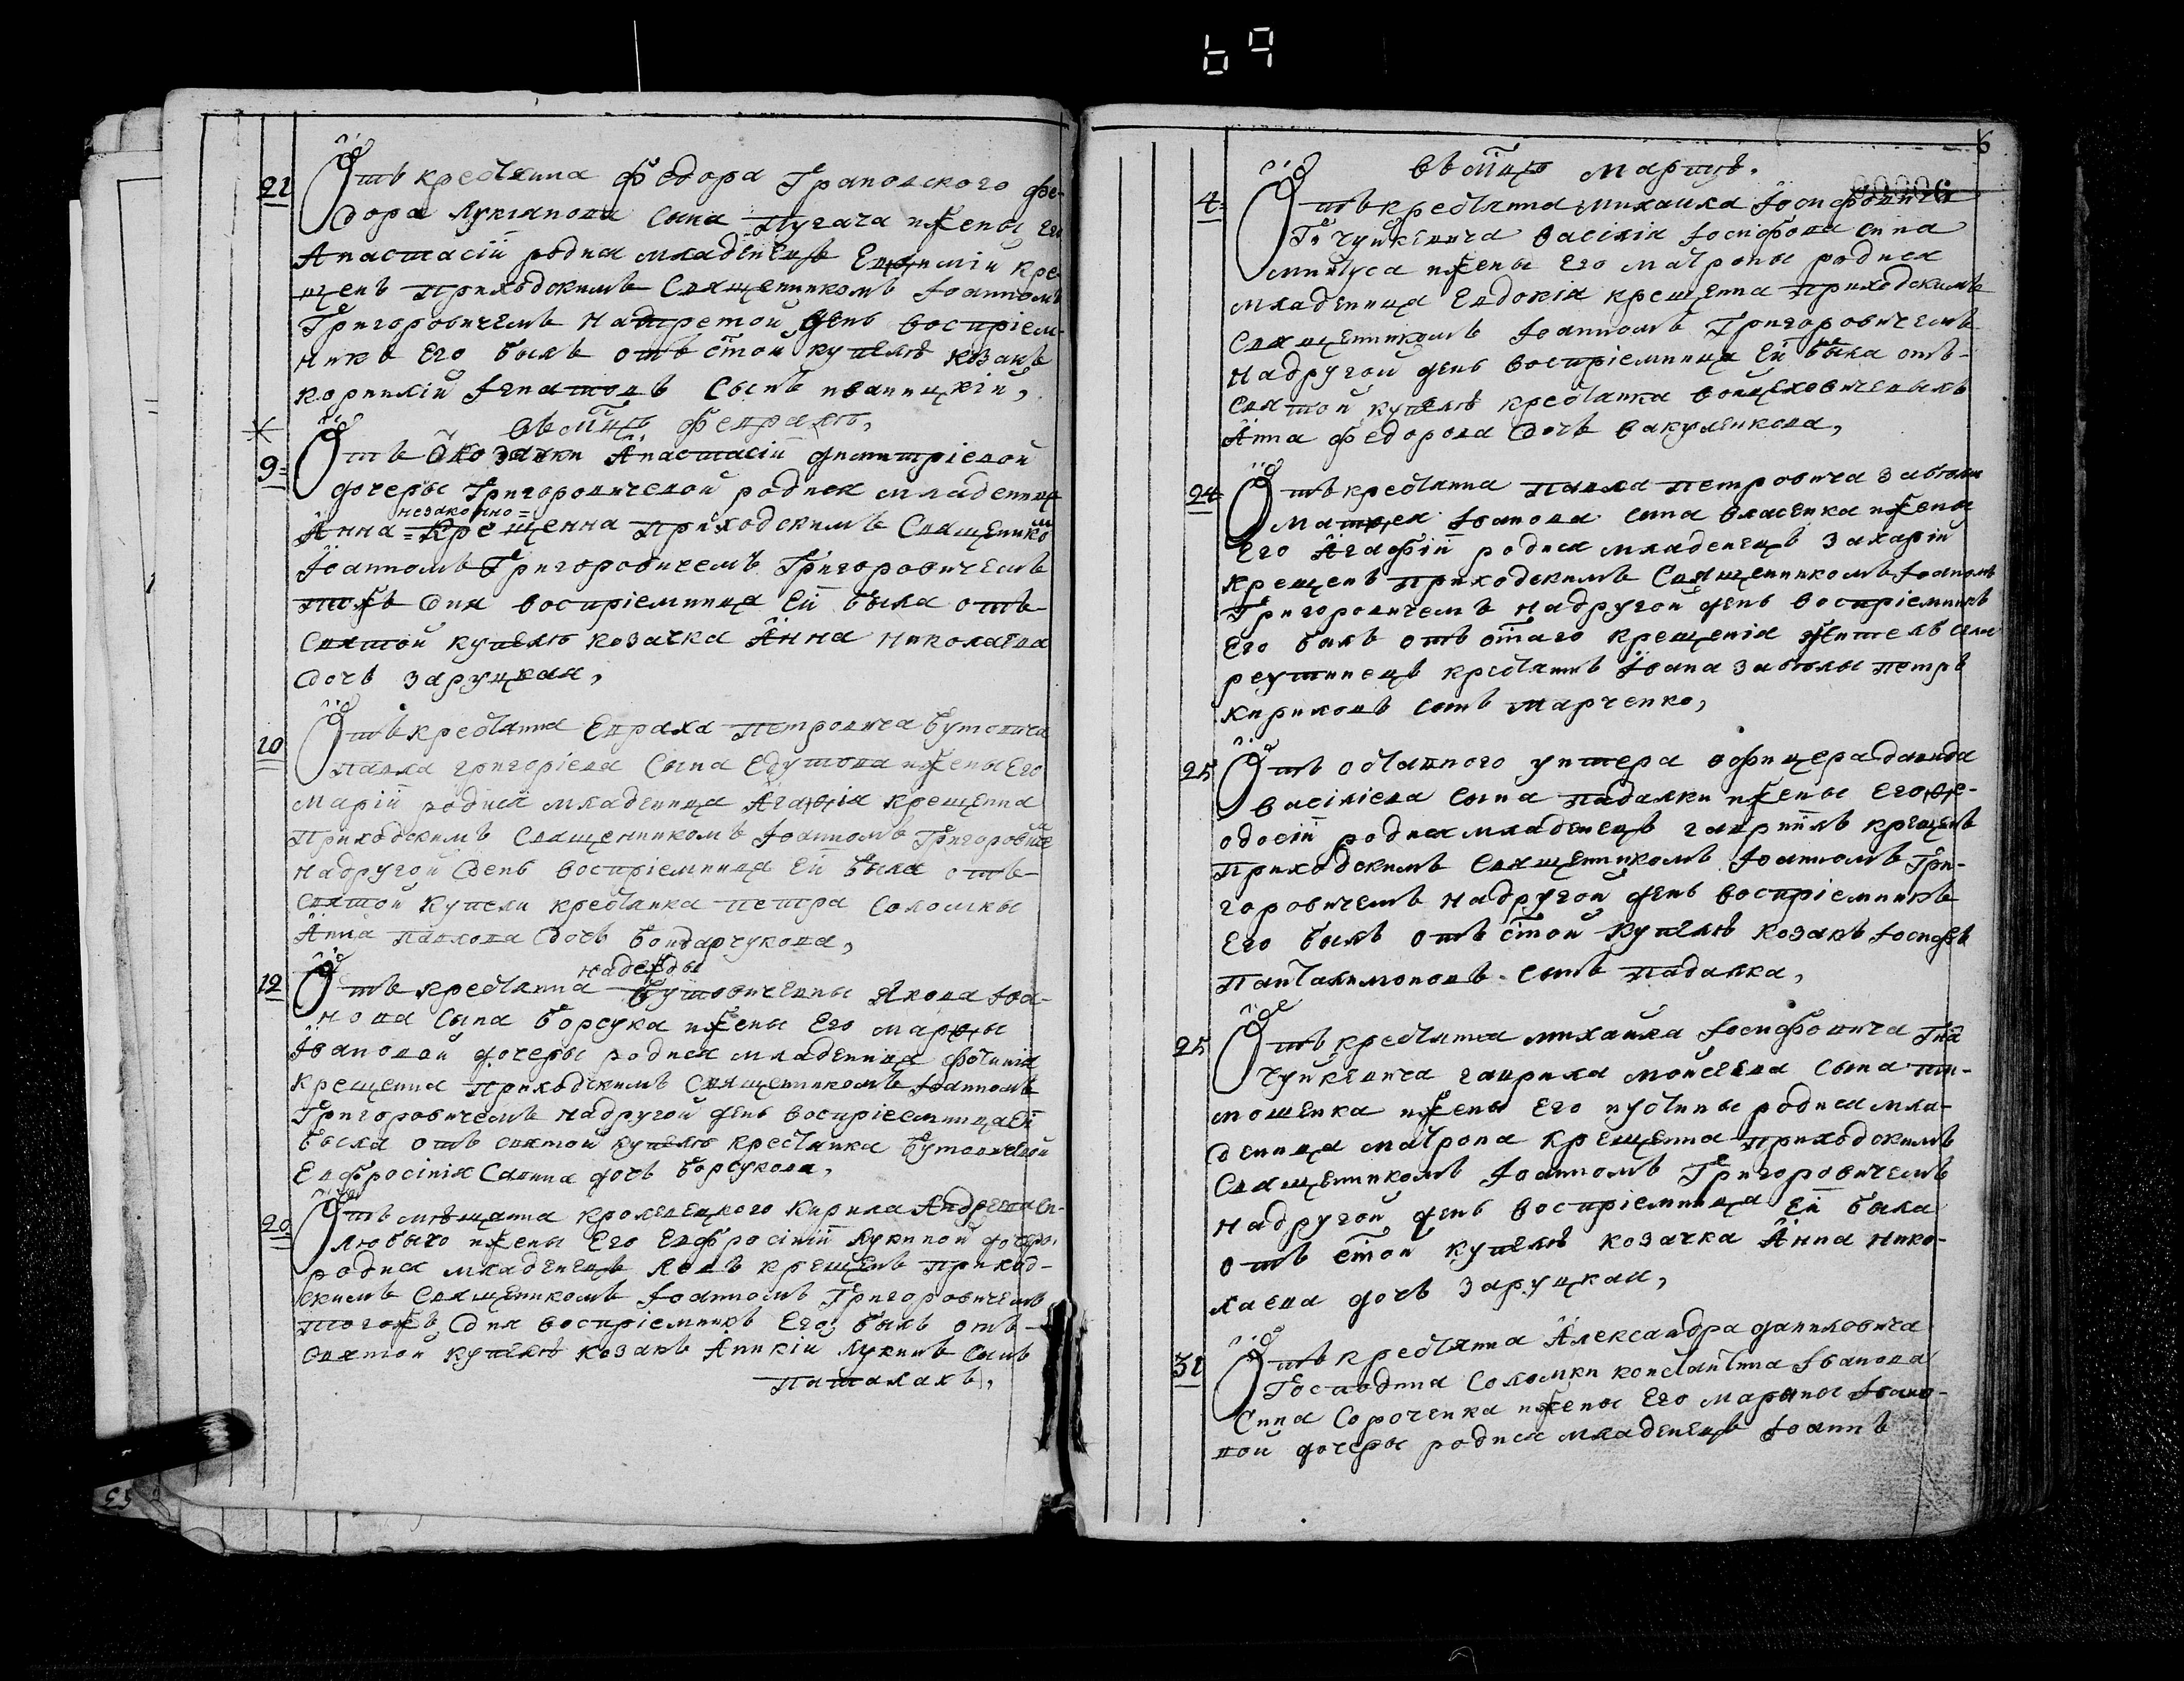 69
21
Отъ крестянина Федора Грановского Фе-
дора Лукіянова сына Пугача и жены его
Анастасіи родися младенецъ Евфимій кре-
щенъ приходскимъ священникомъ Іоанномъ
Григоровичемъ на третой день воспріем-
никъ его былъ отъ стой купелѣ козакъ
Корнилій Игнатовъ сынъ
въ мцѣ Февралѣ,
9
Отъ вдовы козачки Анастасіи Димитріевой
дочеры Григоровичевой родися младеница
незаконно=
Анна=крещенна приходскимъ священнико
Іоанномъ Григоровичемъ Григоровичемъ
тогожъ дня воспріемница ей была отъ
святой купелѣ козачка Анна Николаева
дочъ Заруцкая,
10
Отъ крестянина Евраха Петровича Бутовича
Павла Григоріева сына Евтутова и жены его
Маріи родися младеница Агафія крещенна
приходскимъ священникомъ Іоанномъ Григоровиче
на другой день воспріемница ей была отъ
святой купели крестянка Петра Соломки
Анна Павлова дочъ Бондарчукова,
12
надежды
Отъ крестянина Бутовичевны Якова Іва-
нова сына Борсука и жены его Марфы
Івановой дочеры родися младеница Фотинія
крещенна приходскимъ священникомъ Іоанномъ
Григоровичемъ на другой день воспріемница ей
была отъ святой купелѣ крестянка Бутовичевой
Евфросінія Савина дочъ Борсукова,
20
Отъ мѣщанина кролевецкого Кирила Андреева Сы-
любыго и жены его Евфросініи Лукиной дочеры
родися младенецъ Левъ крещенъ приход-
скимъ священникомъ Іоанномъ Григоровичемъ
тогожъ дня воспріемникъ его былъ отъ
святой купелѣ козакъ Аникій Лукинъ сынъ
Паталахъ,
6
00006
въ мцѣ Мартѣ.
4
Отъ крестянина Михаила Іосифовича
Гна Чуйкевича Василія Іосифова сина
Минтуса и жены его Матроны родися
младеница Евдокія крещенна приходскимъ
священникомъ Іоанномъ Григоровичемъ
на другой день воспріемница ей была отъ
святой купелѣ крестянка Войцеховичевыхъ
Анна Федорова дочъ Вакуленкова,
24
Отъ крестянина Павла Петровича Забѣлы
Матфея Іванова сина Власенка и жены
его Агафіи родися младенецъ Захарій
крещенъ приходскимъ священникомъ Іоаномъ
Григоровичемъ на другой день воспріемникъ
его былъ отъ стаго крещенія житель села
Реутинецъ крестянинъ Івана Забѣлы Петръ
Кириловъ синъ Марченко,
25
Отъ отставного унтера офицера Давида
Василіева сына Падалки и жены его Фе-
одосіи родися младенецъ Гавріилъ крещенъ
приходскимъ священникомъ Іоанномъ Гри-
горовичемъ на другой день воспріемникъ
его былъ отъ стой купелѣ козакъ Іосифъ
Панталимоновъ сынъ Падалка,
25
Отъ крестянина Михаила Іосифовича Гна
Чуйкевича Гаврила Мойсеева сына Ти-
мошенка и жены его Иустины родися мла-
деница Матрона крещенна приходскимъ
священникомъ Іоанномъ Григоровичемъ
на другой день воспріемница ей была
отъ стой купелѣ козачка Анна Нико-
лаева дочъ Заруцкая,
31
Отъ крестянина Александра Даниловича
Господина Соломки Константина Іванова
сина Сороченка и жены его Марины Івано-
вой дочеры родися младенецъ Іоаннъ